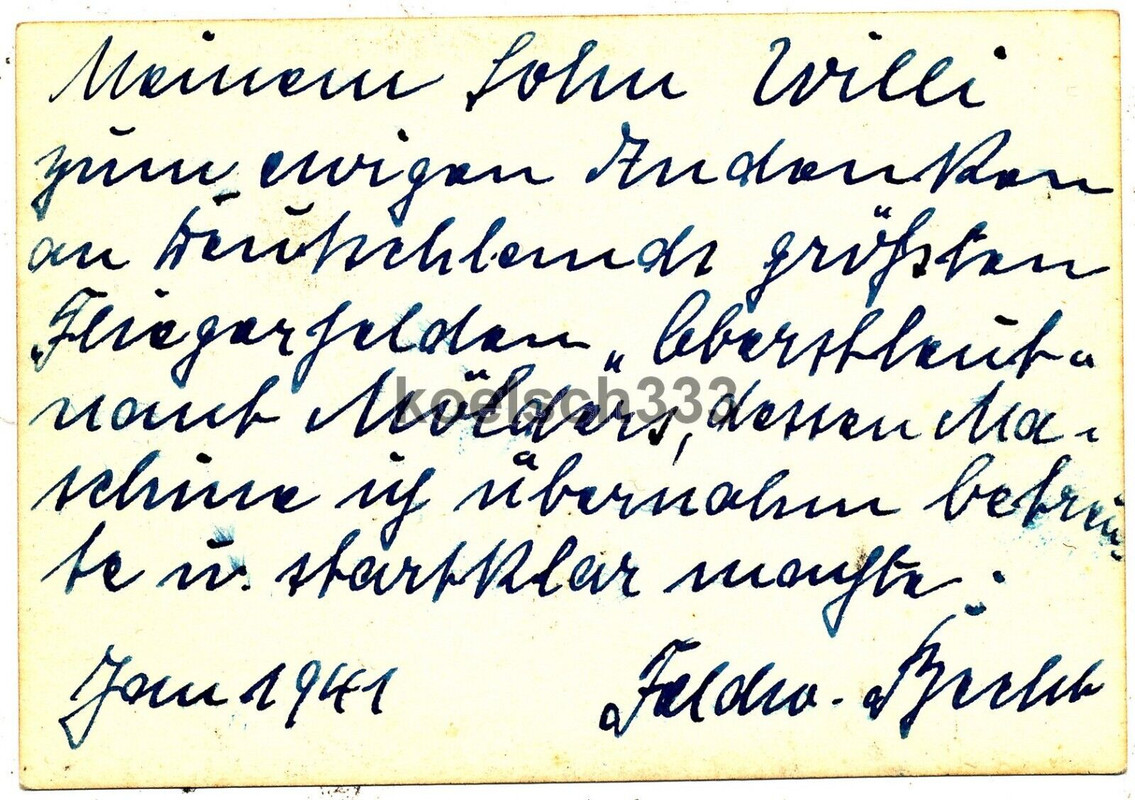 Meinem Sohn Willi
zum ewigen Andenken
an Deutschlands größten
Fliegerhelden „Oberstleut-
nant Mölders, dessen Ma-
schine ich übernahm betreu-
te u. startklar machte.
Jan 1941 Feldw.
koelsch333